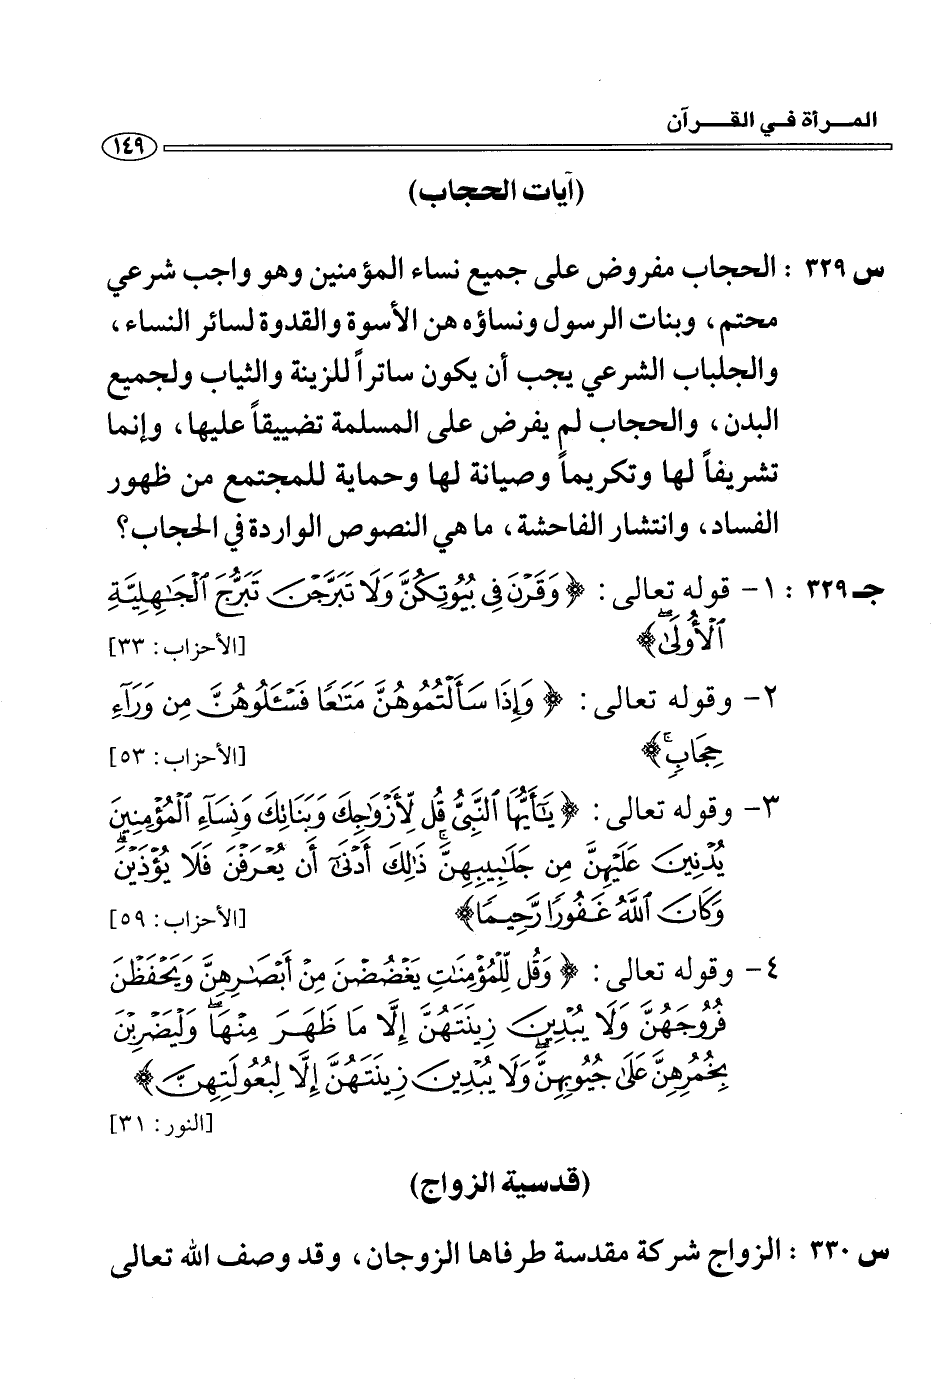 المـــرأة فـــي القـــرآن
١٤٩
(آيات الحجاب)
س ٣٢٩ : الحجاب مفروض على جميع نساء المؤمنين وهو واجب شرعي
محتم، وبنات الرسول ونساؤه هن الأسوة والقدوة لسائر النساء،
والجلباب الشرعي يجب أن يكون ساتراً للزينة والثياب ولجميع
البدن، والحجاب لم يفرض على المسلمة تضييقاً عليها، وإنما
تشريفاً لها وتكريماً وصيانة لها وحماية للمجتمع من ظهور
الفساد، وانتشار الفاحشة، ما هي النصوص الواردة في الحجاب؟
جـ ٣٢٩ : ١- قوله تعالى: ﴿وَقَرْنَ فِى بُيُوتِكُنَّ وَلَا تَبَرَّجْنَ تَبَرُّجَ ٱلْجَـٰهِلِيَّةِ
ٱلْأُولَىٰ ۖ﴾ [الأحزاب: ٣٣]
٢- وقوله تعالى: ﴿وَإِذَا سَأَلْتُمُوهُنَّ مَتَـٰعًا فَسْـَٔلُوهُنَّ مِن وَرَآءِ
حِجَابٍ ۚ﴾ [الأحزاب: ٥٣]
٣- وقوله تعالى: ﴿يَـٰٓأَيُّهَا ٱلنَّبِىُّ قُل لِّأَزْوَٰجِكَ وَبَنَاتِكَ وَنِسَآءِ ٱلْمُؤْمِنِينَ
يُدْنِينَ عَلَيْهِنَّ مِن جَلَـٰبِيبِهِنَّ ۚ ذَٰلِكَ أَدْنَىٰٓ أَن يُعْرَفْنَ فَلَا يُؤْذَيْنَ ۗ
وَكَانَ ٱللَّهُ غَفُورًا رَّحِيمًا﴾ [الأحزاب: ٥٩]
٤- وقوله تعالى: ﴿وَقُل لِّلْمُؤْمِنَـٰتِ يَغْضُضْنَ مِنْ أَبْصَـٰرِهِنَّ وَيَحْفَظْنَ
فُرُوجَهُنَّ وَلَا يُبْدِينَ زِينَتَهُنَّ إِلَّا مَا ظَهَرَ مِنْهَا ۖ وَلْيَضْرِبْنَ
بِخُمُرِهِنَّ عَلَىٰ جُيُوبِهِنَّ ۖ وَلَا يُبْدِينَ زِينَتَهُنَّ إِلَّا لِبُعُولَتِهِنَّ﴾
[النور: ٣١]
(قدسية الزواج)
س ٣٣٠ : الزواج شركة مقدسة طرفاها الزوجان، وقد وصف الله تعالى